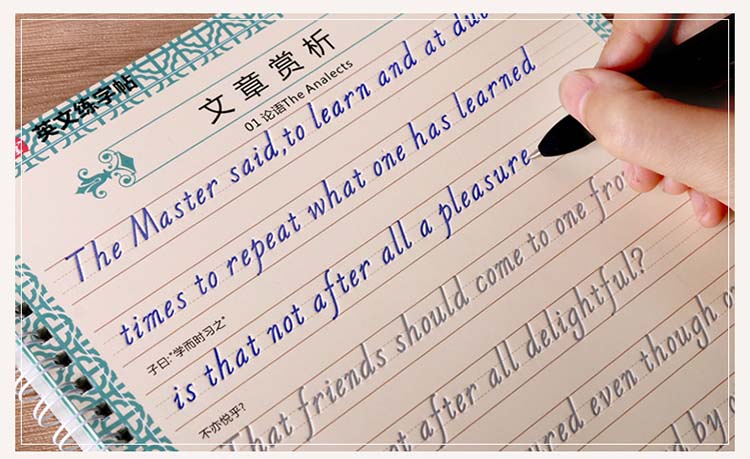 英文练字帖
文章赏析
01 论语The Analects
The Master said,to learn and at due
times to repeat what one has learned
子曰:"学而时习之"
is that not after all a pleasure
不亦悦乎?
That friends should come to one from
not after all delightful?
even though
by